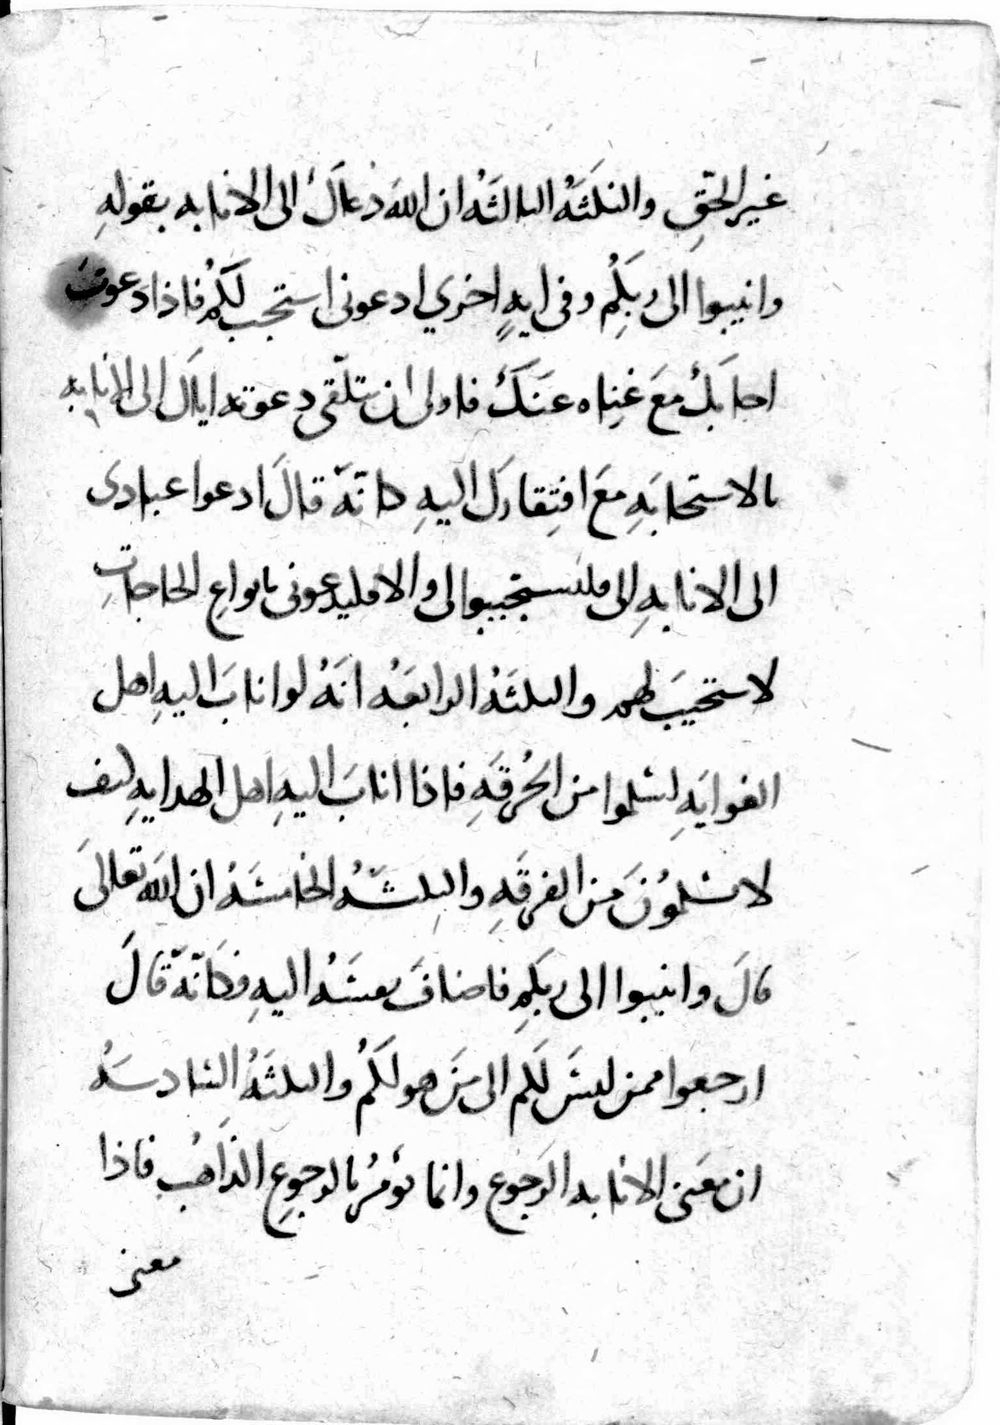 غير الحقِ والنكتَهُ الثالثَهُ ان اللهَ دَعاكَ الى الانابه بقولهِ
وانيبوا الى ربِكُم وفى ايهٍ اخري ادعونى استجب لكُم فاذا دعوتَ
اجابكَ مَعَ غِناه عَنكَ فاولى ان تتلقى دعوته اياك الى الانابه
بالاستجابَهِ مَعَ افتِقارك اليهِ كانّهَ قالَ ادعوا عبادى
الى الانابهِ الى فليستجيبوا لى والا فليدعونى بانواعِ الحاجاتِ
لاستجيبَ لهم والنكتَهُ الرابعَه انهُ لو انابَ اليهِ اهل
الغوايَهِ لسَلموا من الحُرقَهِ فاذا انابَ اليهِ اهل الهدايهِ كيف
لا يسْلمُونَ من الفرقَهِ والنكتَهُ الخامسَهُ ان الله تعالىَ
قالَ وانيبوا الى ربكِم فاضافَ نفسَهُ اليهِ فكانّهَ قالَ
ارجعوا ممن ليسَ لكَم الى مَن هو لكُم والنكتَهُ السَادسَهُ
ان معنى الانابه الرجوع وانما يؤمَرُ بالرجوعِ الذاهب فاذا
معنى